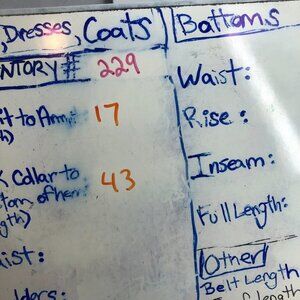 , Dresses, Coats
NTORY # 229
it to Arm: 17
h)
K Collar to
tom of hem: 43
gth)
aist:
lders:
Bottoms
Waist:
Rise:
Inseam:
Full Length:
Other
Belt Length